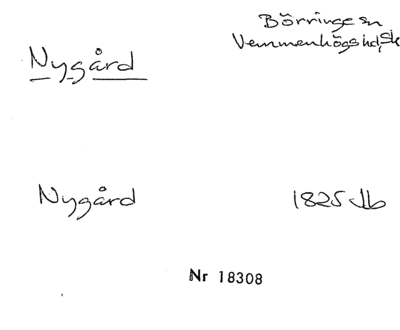 Börringe sn
Vemmenhögs hd, Sk
Nygård
Nygård 1825 Jb
Nr 18308